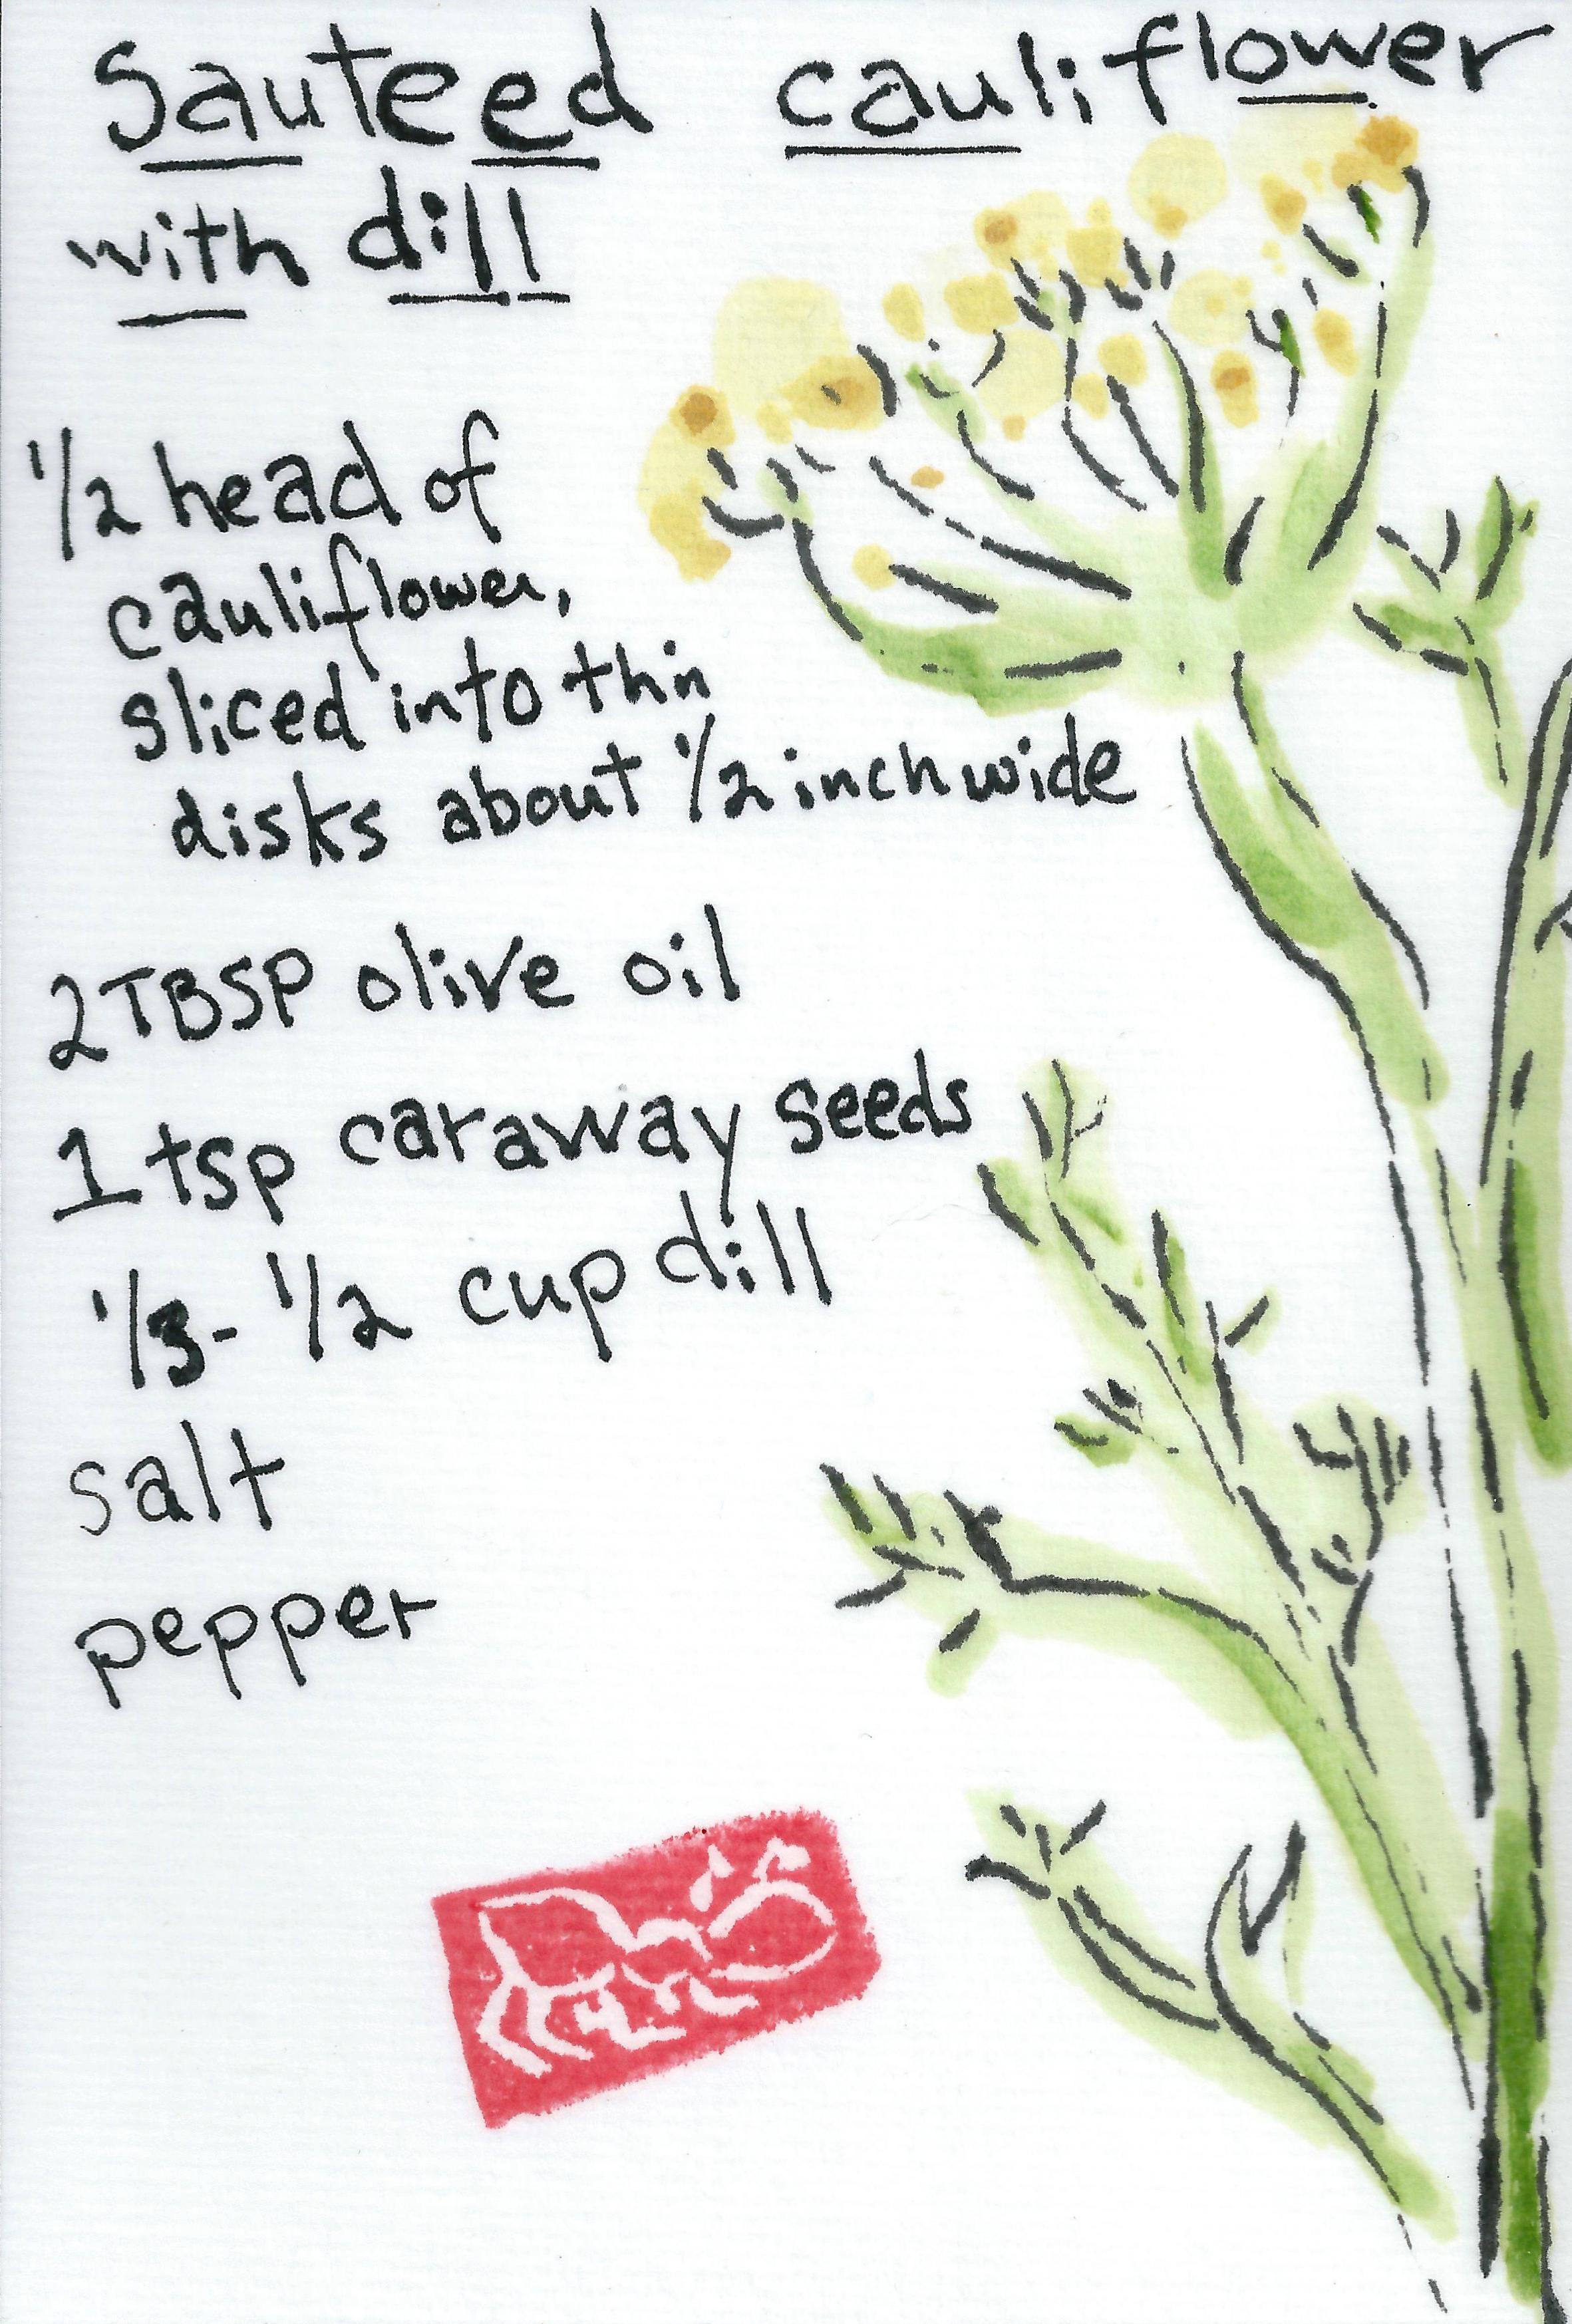 Sauteed cauliflower
with dill
1/2 head of
cauliflower,
sliced into thin
disks about 1/2 inch wide
2 TBSP olive oil
1 tsp caraway seeds
1/3 - 1/2 cup dill
salt
pepper